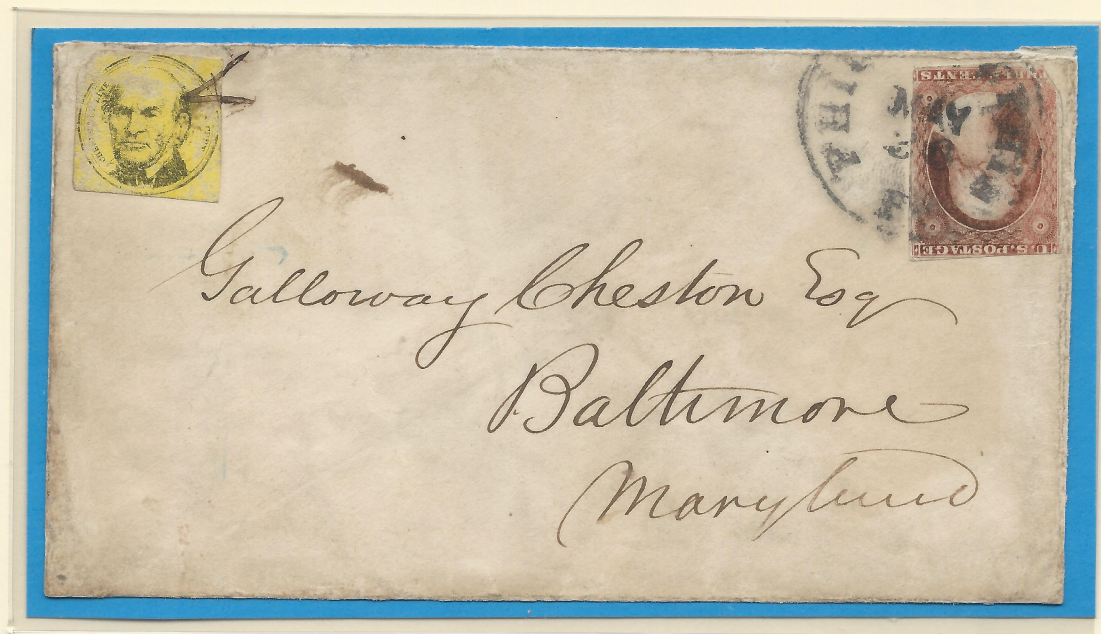 THREE CENTS
PHIL
MAY
U.S. POSTAGE
Galloway Cheston Esq
Baltimore
Maryland